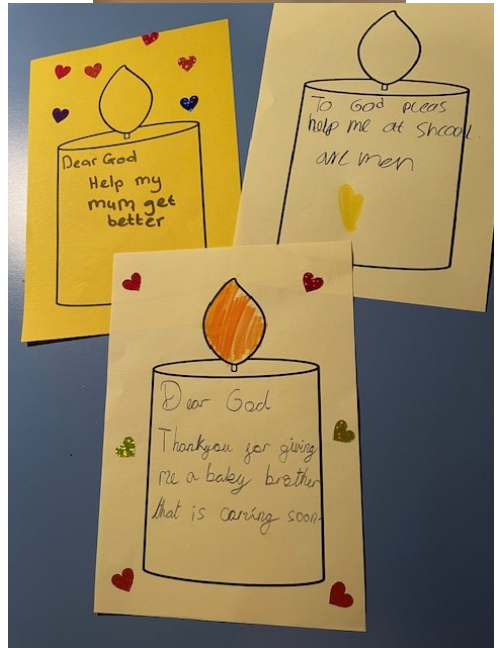 Dear God
Help my
mum get
better
To God pleas
help me at Shcool.
are men
Dear God
Thankyou for giving
me a baby brother
that is coming soon.